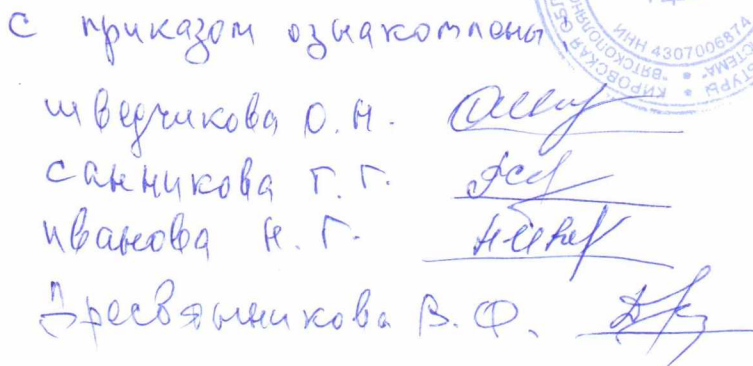 С приказом ознакомлены
Шведчикова О.Н.
Санникова Г.Г.
Иванова Н.Г.
Дресвянникова В.Ф.
КИРОВСКАЯ ОБЛ
ИНН 430700687